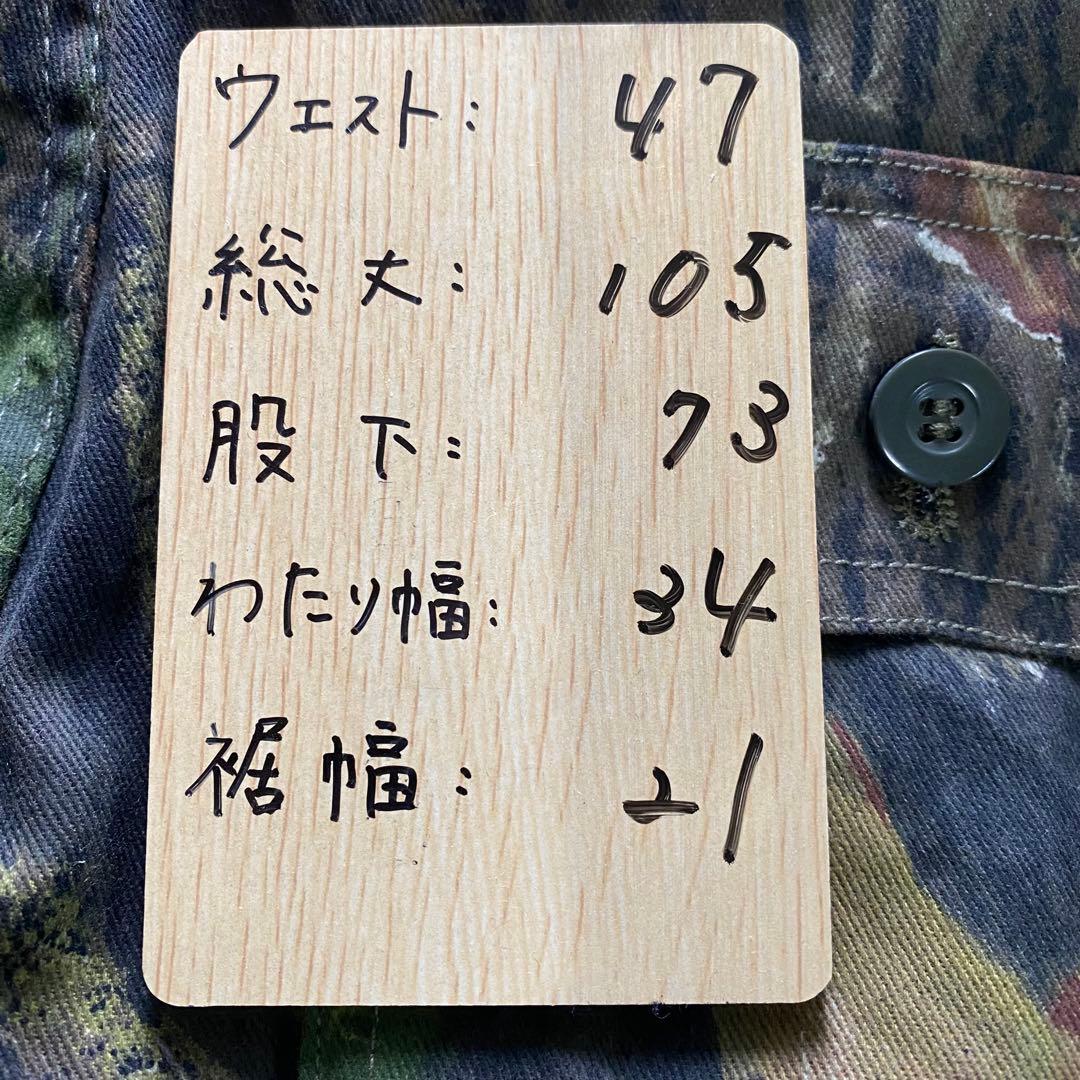 ウエスト: 47
総丈: 105
股下: 73
わたり幅: 34
裾幅: 21